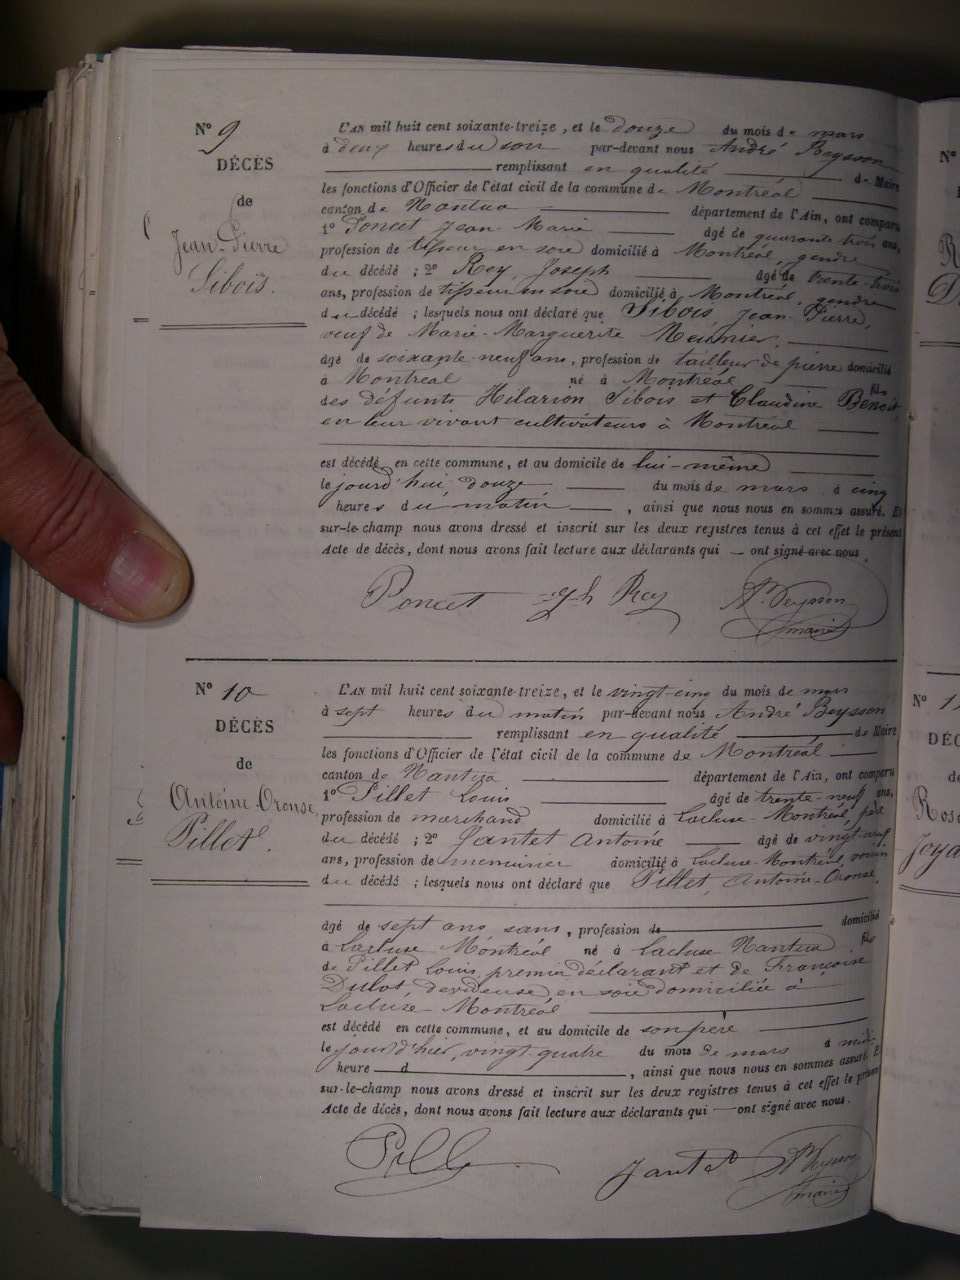 N° 9
DÉCÈS
de
Jean-Pierre
Sibois.
L'AN mil huit cent soixante-treize, et le douze du mois de mars
à deux heures du soir par-devant nous André Beysson
remplissant en qualité de Maire
les fonctions d'Officier de l'état civil de la commune de Montréal
canton de Nantua département de l'Ain, ont comparu
1° Poncet Jean Marie âgé de quarante trois ans,
profession de tisseur en soie domicilié à Montréal, gendre
du décédé ; 2° Rey Joseph âgé de trente-trois
ans, profession de tisseur en soie domicilié à Montréal, gendre
du décédé ; lesquels nous ont déclaré que Sibois, Jean-Pierre,
veuf de Marie-Marguerite Meunier,
âgé de soixante-neuf ans, profession de tailleur de pierre domicilié
à Montréal né à Montréal fils
des défunts Hilarion Sibois et Claudine Benoit
en leur vivant cultivateurs à Montréal
est décédé en cette commune, et au domicile de lui-même
le jourd'hui douze du mois de mars à cinq
heures du matin, ainsi que nous nous en sommes assuré. Et
sur-le-champ nous avons dressé et inscrit sur les deux registres tenus à cet effet le présent
Acte de décès, dont nous avons fait lecture aux déclarants qui — ont signé avec nous.
Poncet Jh Rey A. Beysson
maire
N° 10
DÉCÈS
de
Antoine-Oronse
Pillet.
L'AN mil huit cent soixante-treize, et le vingt-cinq du mois de mars
à sept heures du matin par-devant nous André Beysson
remplissant en qualité de Maire
les fonctions d'Officier de l'état civil de la commune de Montréal
canton de Nantua département de l'Ain, ont comparu
1° Pillet Louis âgé de trente-neuf ans,
profession de marchand domicilié à Lacluse-Montréal, père
du décédé ; 2° Jantet Antoine âgé de vingt-neuf
ans, profession de menuisier domicilié à Lacluse-Montréal, voisin
du décédé ; lesquels nous ont déclaré que Pillet, Antoine-Oronse,
âgé de sept ans, sans, profession de domicilié
à Lacluse Montréal né à Lacluse Nantua fils
de Pillet Louis, premier déclarant et de Françoise
Dulot, dévideuse en soie domiciliée à
Lacluse Montréal
est décédé en cette commune, et au domicile de son père
le jour d'hier, vingt quatre du mois de mars à midi
heure d, ainsi que nous nous en sommes assuré. Et
sur-le-champ nous avons dressé et inscrit sur les deux registres tenus à cet effet le présent
Acte de décès, dont nous avons fait lecture aux déclarants qui — ont signé avec nous.
Jantet A. Beysson
maire
N°
N° 1
DÉC
Joya